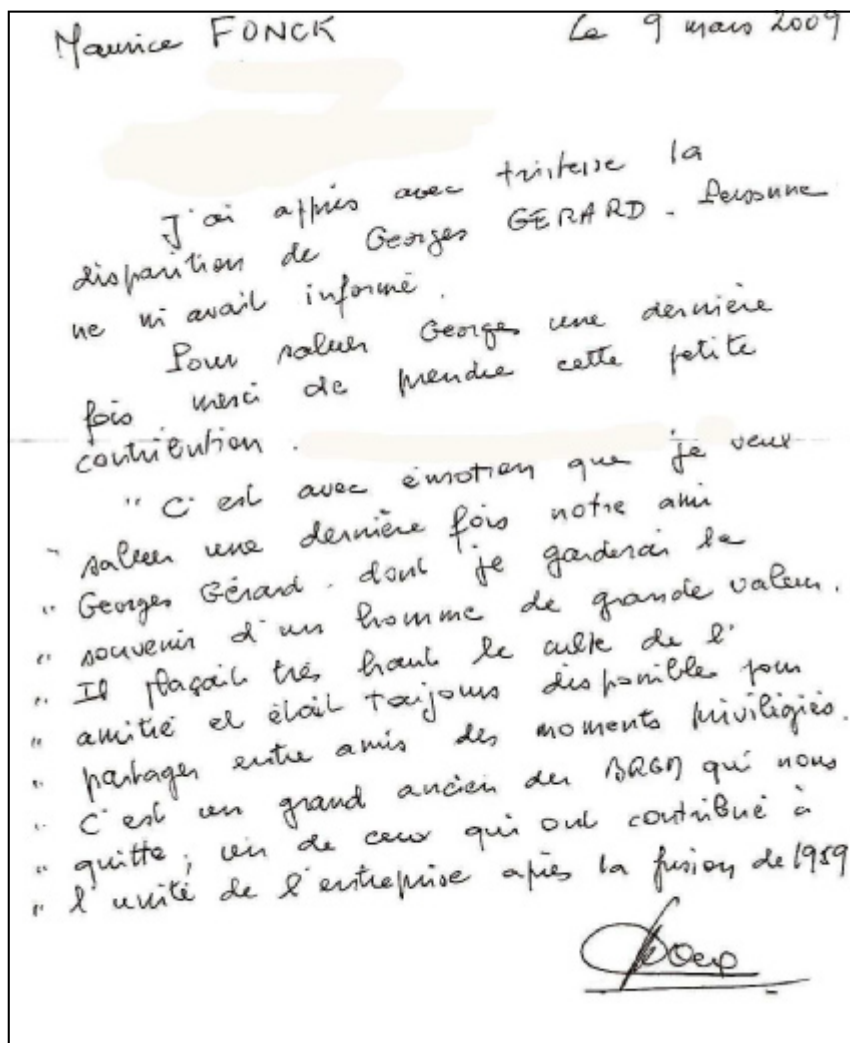 Maurice FONCK Le 9 mars 2009
J'ai appris avec tristesse la
disparition de Georges GERARD. Personne
ne m'avait informé.
Pour saluer Georges une dernière
fois merci de prendre cette petite
contribution.
" C'est avec émotion que je veux
" saluer une dernière fois notre ami
" Georges Gérard. dont je garderai le
" souvenir d'un homme de grande valeur.
" Il plaçait très haut le culte de l'
" amitié et était toujours disponible pour
" partager entre amis des moments privilégiés.
" C'est un grand ancien du BRGM qui nous
" quitte ; un de ceux qui ont contribué à
" l'unité de l'entreprise après la fusion de 1959